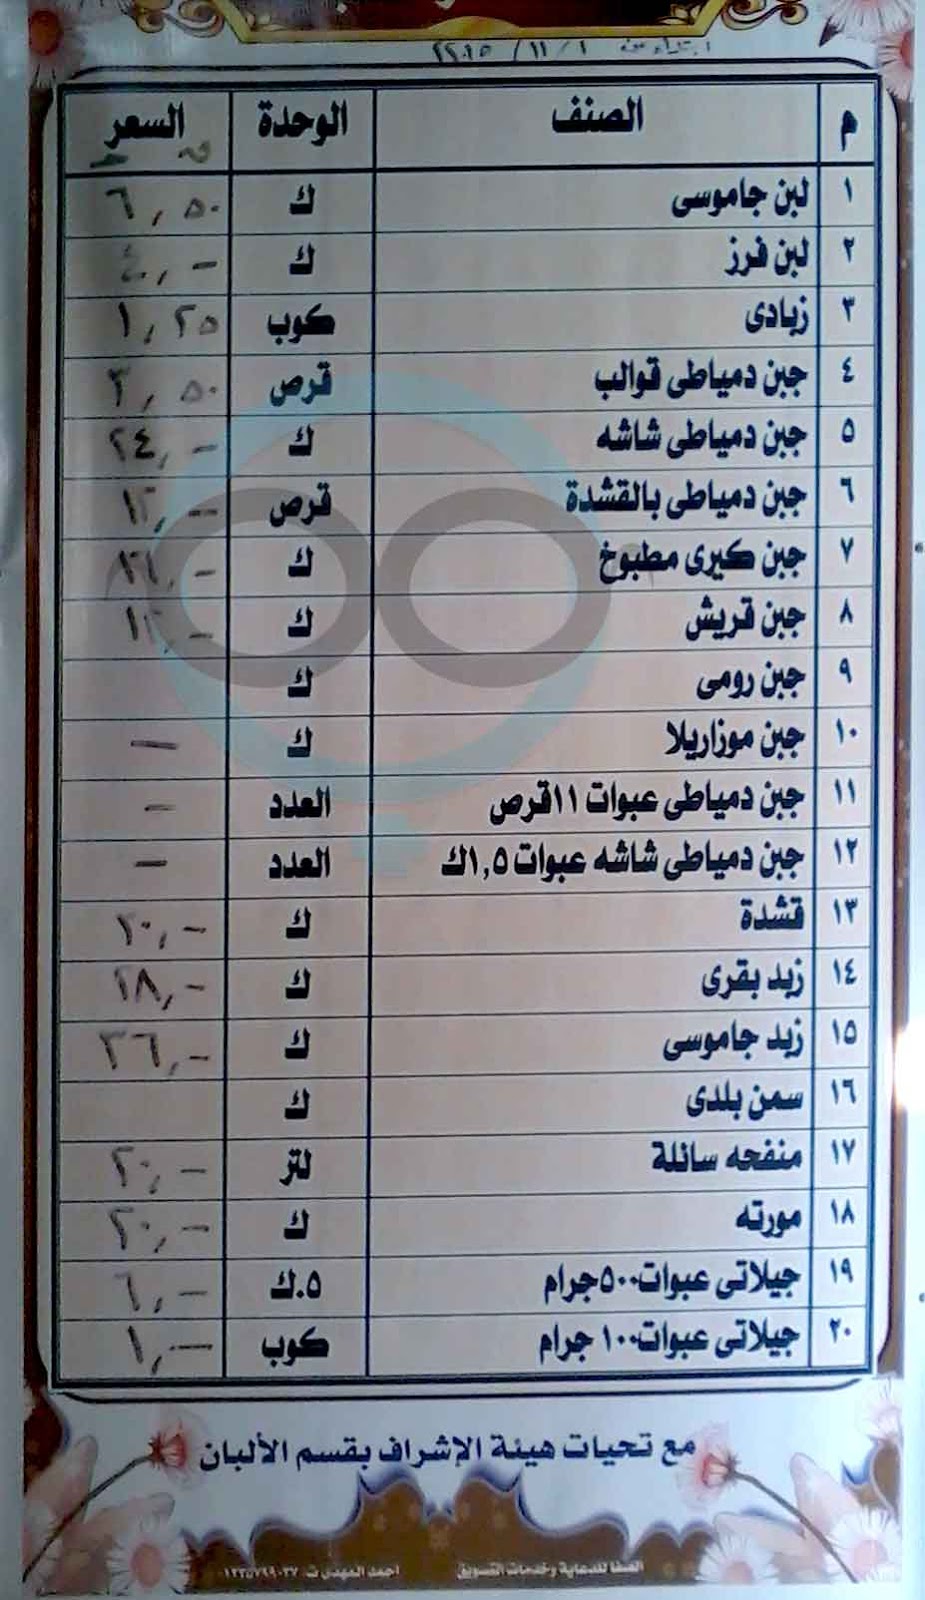 ابتداء من ١ / ١١ / ٢٠١٥
م الصنف الوحدة السعر
١ لبن جاموسى ك ٦,٥٠
٢ لبن فرز ك ٤,-
٣ زبادى كوب ١,٢٥
٤ جبن دمياطى قوالب قرص ٣,٥٠
٥ جبن دمياطى شاشه ك ٢٤,-
٦ جبن دمياطى بالقشدة قرص
٧ جبن كيرى مطبوخ ك
٨ جبن قريش ك
٩ جبن رومى ك
١٠ جبن موزاريلا ك —
١١ جبن دمياطى عبوات ١١قرص العدد —
١٢ جبن دمياطى شاشه عبوات ١,٥ك العدد —
١٣ قشدة ك
١٤ زبد بقرى ك ١٨,-
١٥ زبد جاموسى ك ٣٦,-
١٦ سمن بلدى ك
١٧ منفحه سائلة لتر ٢٠,-
١٨ مورته ك ٢٠,-
١٩ جيلاتى عبوات٥٠٠جرام ٥.ك ٦,-
٢٠ جيلاتى عبوات١٠٠ جرام كوب ١,-
مع تحيات هيئة الإشراف بقسم الألبان
الصفا للدعاية وخدمات التسويق احمد المهدى ت